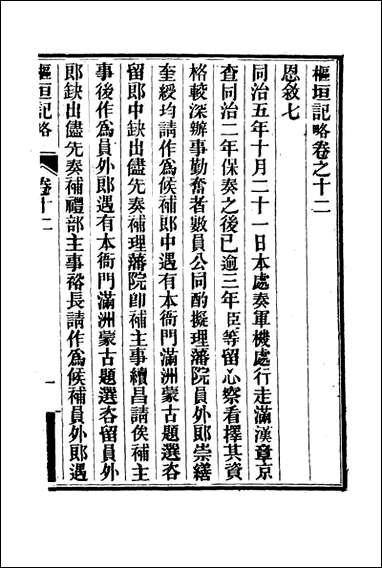 樞垣記略卷之十二
恩敘七
同治五年十月二十一日本處奏軍機處行走滿漢章京
查同治二年保奏之後已逾三年臣等留心察看擇其資
格較深辦事勤奮者數員公同酌擬理藩院員外郎崇繕
奎綬均請作為候補郎中遇有本衙門滿洲蒙古題選咨
留郎中缺出儘先奏補理藩院即補主事續昌請俟補主
事後作為員外郎遇有本衙門滿洲蒙古題選咨留員外
郎缺出儘先奏補禮部主事裕長請作為候補員外郎遇
樞垣記略
卷十二
一